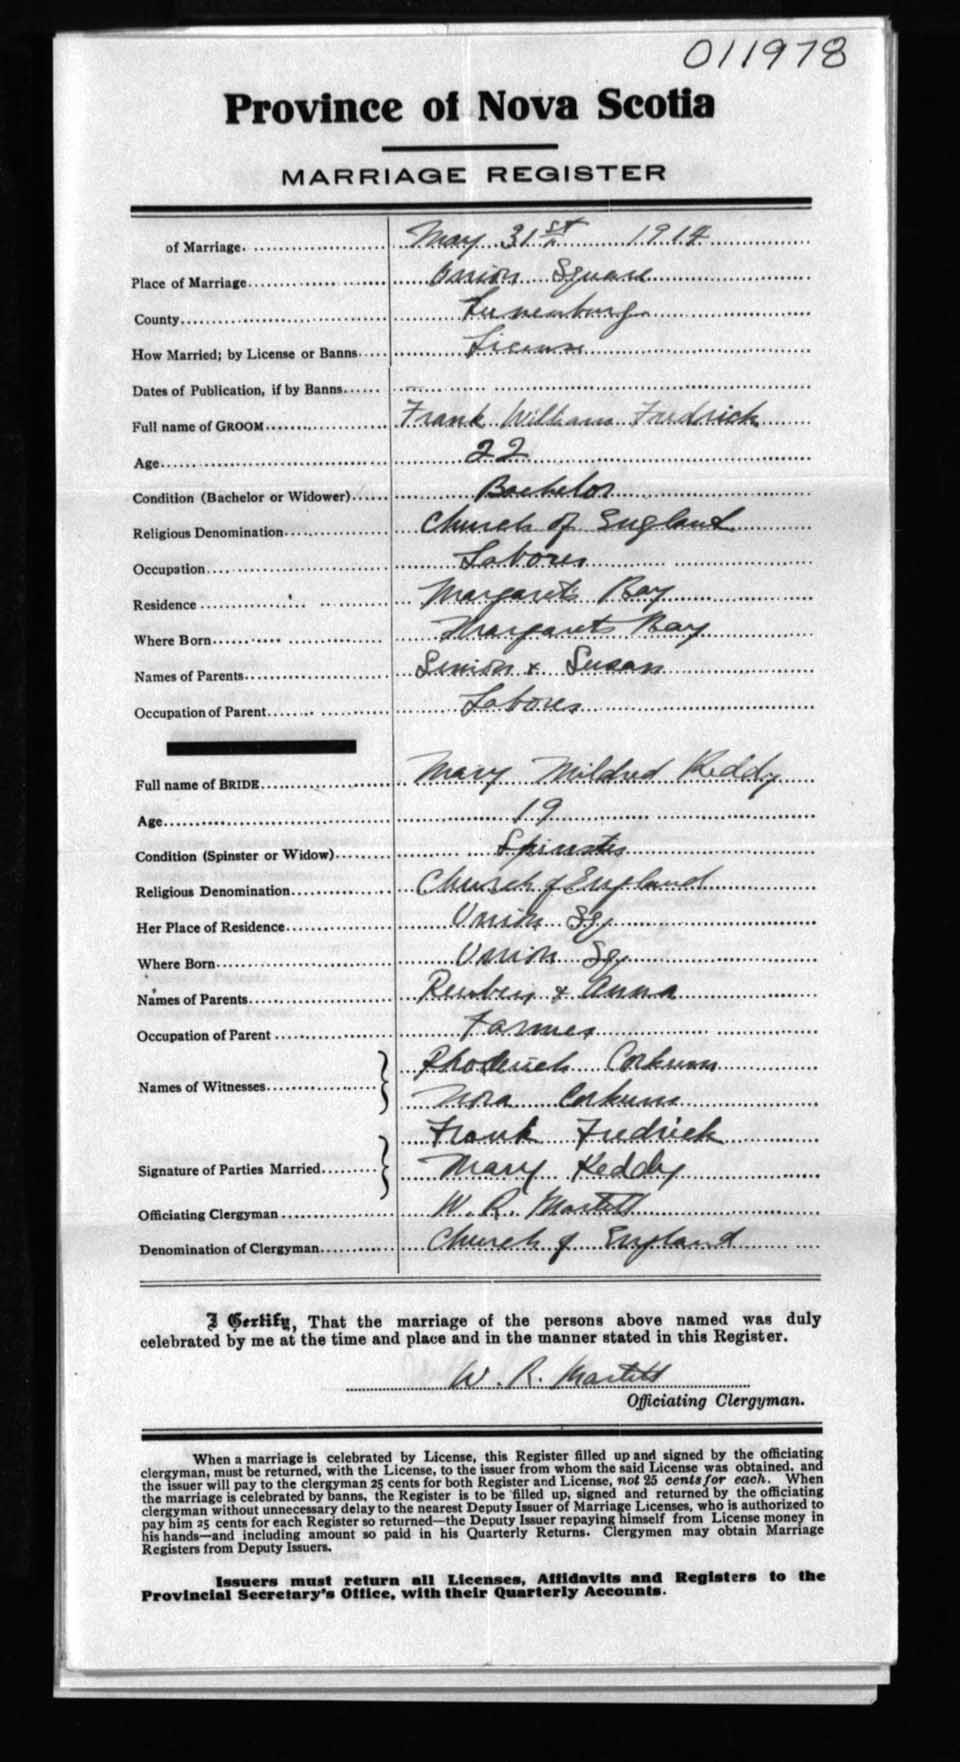 011978
Province of Nova Scotia
MARRIAGE REGISTER
of Marriage. May 31st 1914
Place of Marriage Union Square
County Lunenburg
How Married; by License or Banns License
Dates of Publication, if by Banns —
Full name of GROOM Frank William Fredrick
Age 22
Condition (Bachelor or Widower) Bachelor
Religious Denomination Church of England
Occupation Laborer
Residence Margarets Bay
Where Born Margarets Bay
Names of Parents Simion & Susan
Occupation of Parent Laborer
Full name of BRIDE Mary Mildred Keddy
Age 19
Condition (Spinster or Widow) Spinster
Religious Denomination Church of England
Her Place of Residence Union Sq.
Where Born Union Sq.
Names of Parents Reuben & Anna
Occupation of Parent Farmer
Names of Witnesses Rhoderick Corkum
Nora Corkum
Signature of Parties Married Frank Fredrick
Mary Keddy
Officiating Clergyman W. R. Martell
Denomination of Clergyman Church of England
I Certify, That the marriage of the persons above named was duly
celebrated by me at the time and place and in the manner stated in this Register.
W. R. Martell
Officiating Clergyman.
When a marriage is celebrated by License, this Register filled up and signed by the officiating
clergyman, must be returned, with the License, to the issuer from whom the said License was obtained, and
the issuer will pay to the clergyman 25 cents for both Register and License, not 25 cents for each. When
the marriage is celebrated by banns, the Register is to be filled up, signed and returned by the officiating
clergyman without unnecessary delay to the nearest Deputy Issuer of Marriage Licenses, who is authorized to
pay him 25 cents for each Register so returned—the Deputy Issuer repaying himself from License money in
his hands—and including amount so paid in his Quarterly Returns. Clergymen may obtain Marriage
Registers from Deputy Issuers.
Issuers must return all Licenses, Affidavits and Registers to the
Provincial Secretary's Office, with their Quarterly Accounts.